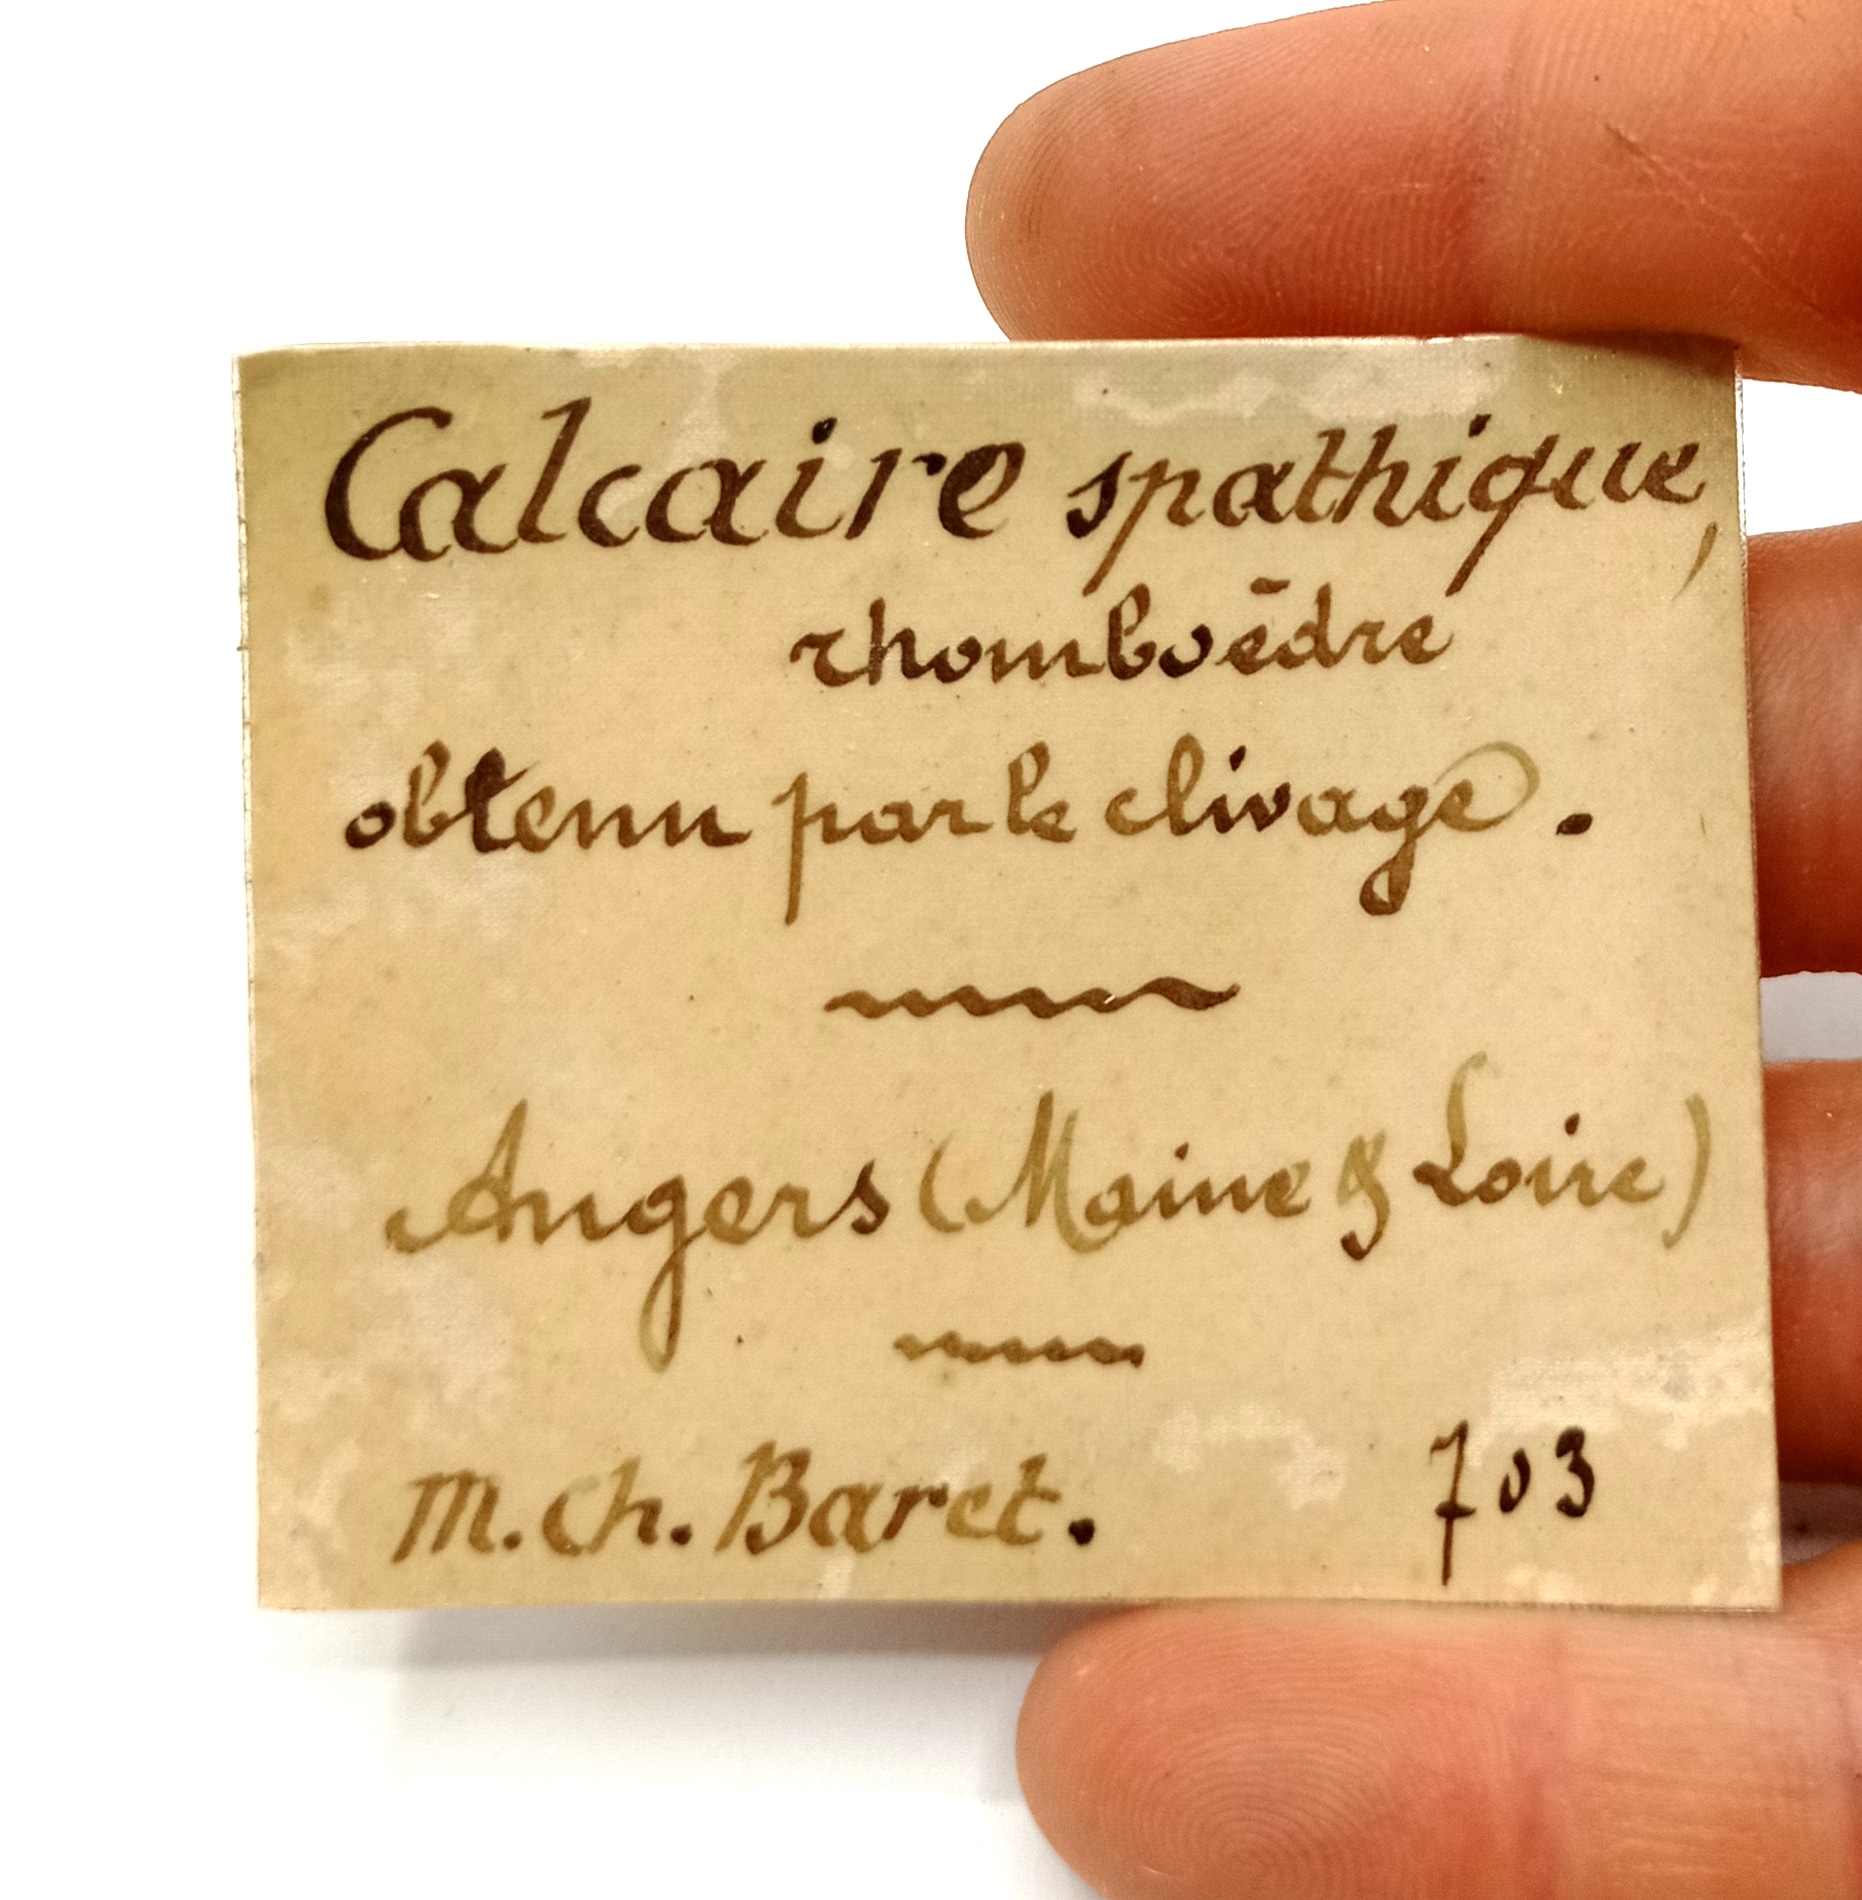 Calcaire spathique,
rhomboēdre
obtenu par le clivage.
Angers (Maine & Loire)
M. Ch. Baret. 703